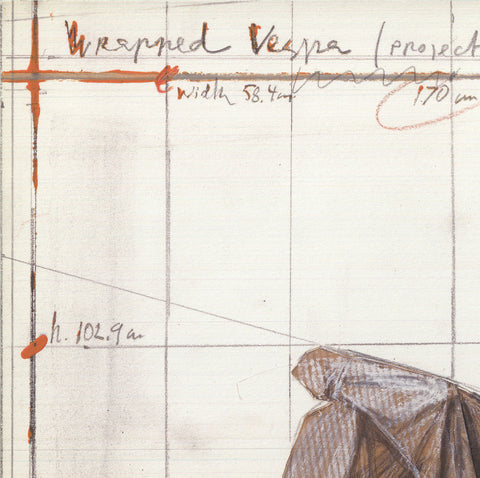 Wrapped Vespa (project
width 58.4 cm 170 cm
h. 102.9 cm